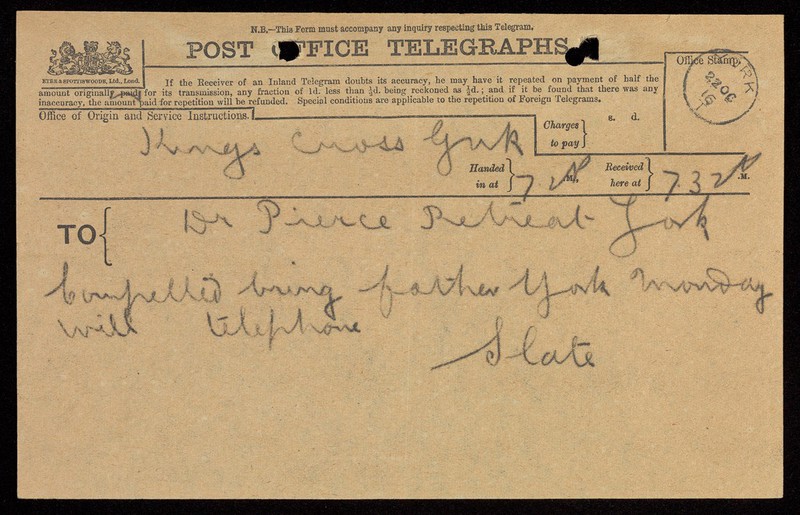 N.B.—This Form must accompany any inquiry respecting this Telegram.
POST OFFICE TELEGRAPHS
EYRE & SPOTTISWOODE, Ltd., Lond.
If the Receiver of an Inland Telegram doubts its accuracy, he may have it repeated on payment of half the
amount originally paid for its transmission, any fraction of 1d. less than ½d. being reckoned as ½d.; and if it be found that there was any
inaccuracy, the amount paid for repetition will be refunded. Special conditions are applicable to the repetition of Foreign Telegrams.
Office Stamp.
YORK
22 OC
16
Office of Origin and Service Instructions.
Kings Cross
Charges to pay
s. d.
Handed in at
7 2
M.
Received here at
7.32
M.
TO
Dr Pierce Retreat York
Compelled bring father York Monday
will telephone
Slate